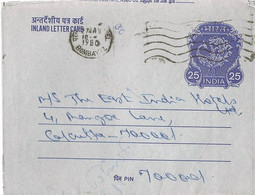 अन्तर्देशीय पत्र कार्ड
INLAND LETTER CARD
1980
BOMBAY
भारत
25 25
INDIA
M/S The East India Hotels
4, Mangoe Lane,
Calcutta - 700001
पिन PIN 700001